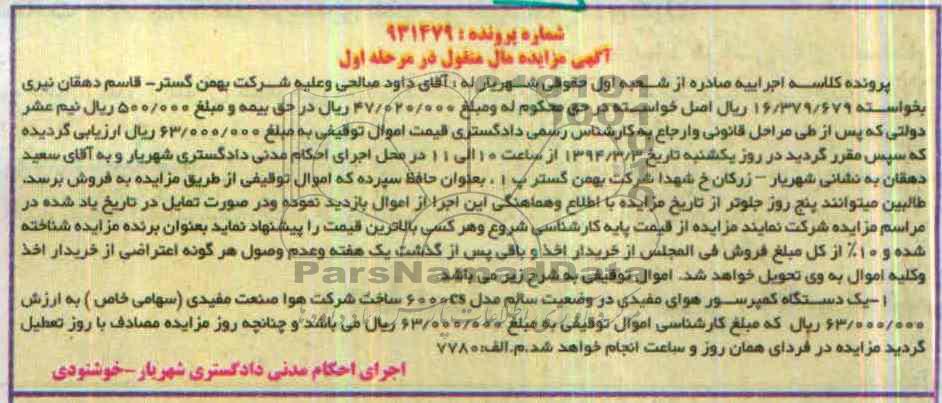 شماره پرونده : ۹۳۱۴۷۹
آگهی مزایده مال منقول در مرحله اول
پرونده کلاسه اجراییه صادره از شعبه اول حقوقی شهریار له : آقای داود صالحی وعلیه شرکت بهمن گستر- قاسم دهقان نیری
بخواسته ۱۶/۳۷۹/۶۷۹ ریال اصل خواسته در حق محکوم له ومبلغ ۴۷/۰۲۰/۰۰۰ ریال در حق بیمه و مبلغ ۵۰۰/۰۰۰ ریال نیم عشر
دولتی که پس از طی مراحل قانونی وارجاع به کارشناس رسمی دادگستری قیمت اموال توقیفی به مبلغ ۶۳/۰۰۰/۰۰۰ ریال ارزیابی گردیده
که سپس مقرر گردید در روز یکشنبه تاریخ ۱۳۹۴/۳/۳ از ساعت ۱۰ الی ۱۱ در محل اجرای احکام مدنی دادگستری شهریار و به آقای سعید
دهقان به نشانی شهریار – زرکان خ شهدا شرکت بهمن گستر پ ۱ ، بعنوان حافظ سپرده که اموال توقیفی از طریق مزایده به فروش برسد.
طالبین میتوانند پنج روز جلوتر از تاریخ مزایده با اطلاع وهماهنگی این اجرا از اموال بازدید نموده ودر صورت تمایل در تاریخ یاد شده در
مراسم مزایده شرکت نمایند مزایده از قیمت پایه کارشناسی شروع وهر کسی بالاترین قیمت را پیشنهاد نماید بعنوان برنده مزایده شناخته
شده و ۱۰٪ از کل مبلغ فروش فی المجلس از خریدار اخذ و باقی پس از گذشت یک هفته وعدم وصول هر گونه اعتراضی از خریدار اخذ
وکلیه اموال به وی تحویل خواهد شد. اموال توقیفی به شرح زیر می باشد
۱-یک دستگاه کمپرسور هوای مفیدی در وضعیت سالم مدل ۶۰۰۰cs ساخت شرکت هوا صنعت مفیدی (سهامی خاص ) به ارزش
۶۳/۰۰۰/۰۰۰ ریال که مبلغ کارشناسی اموال توقیفی به مبلغ ۶۳/۰۰۰/۰۰۰ ریال می باشد و چنانچه روز مزایده مصادف با روز تعطیل
گردید مزایده در فردای همان روز و ساعت انجام خواهد شد.م.الف:۷۷۸۰
اجرای احکام مدنی دادگستری شهریار-خوشنودی
ParsNamadData